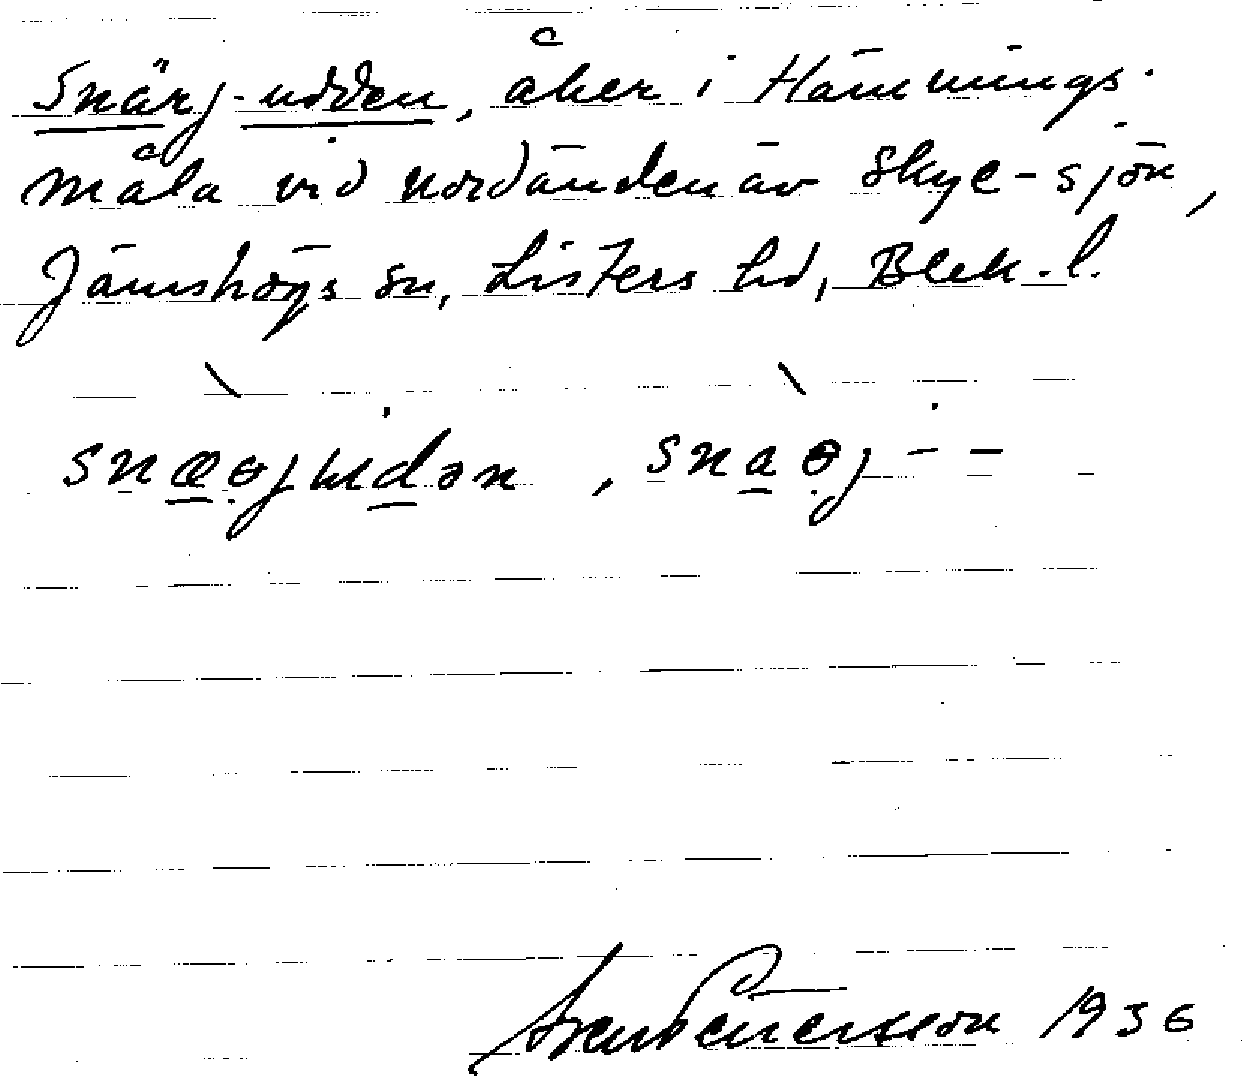 Snärj-udden, åker i Hämmings-
måla vid nordänden av Skye-sjön,
Jämshögs sn, Listers hd, Blek. l.
snæɵjudən, snaɵj – –
Sven Benersson 1936